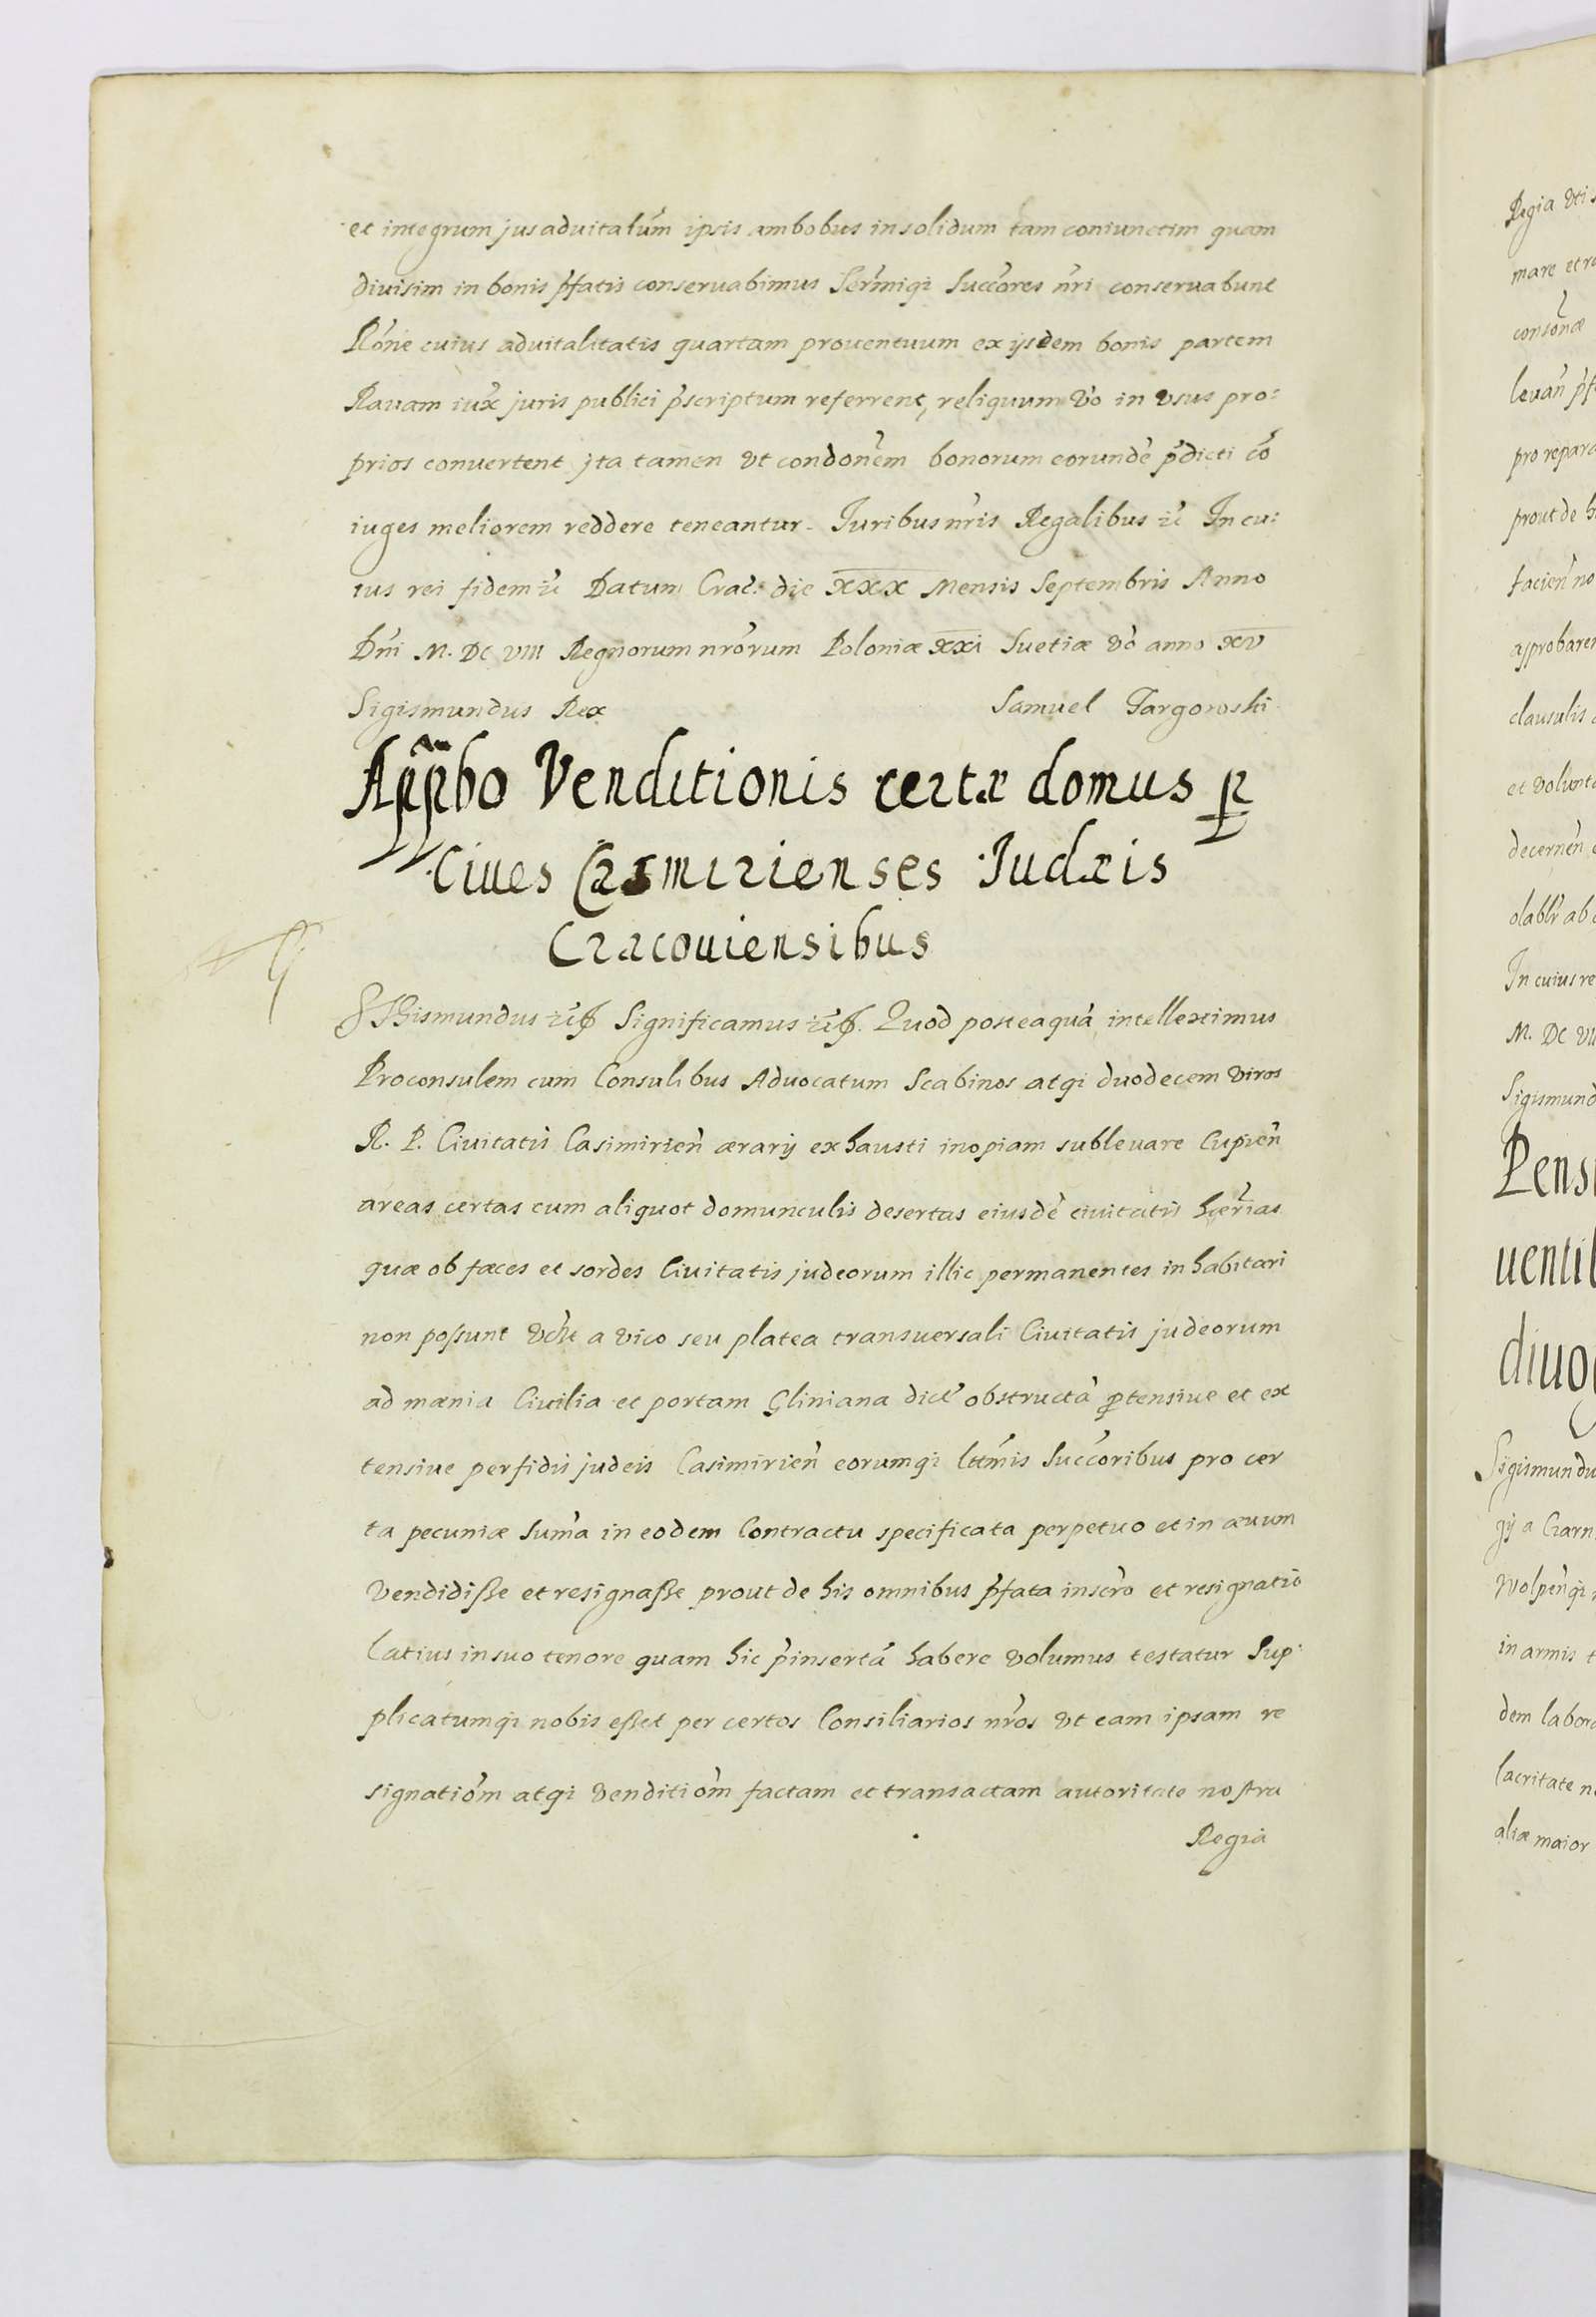 et integrum jus advitalũm ipsis ambobus in solidum tam coniunctim quam
divisim in bonis p̃fatis conservabimus Sermiqi Succores nr̃i conservabunt
Rõne cuius advitalitatis quartam proventuum ex ijsdem bonis partem
Ravam iux̃ juris publici p̃scriptum referrent, reliquum võ in usus pro:
prios convertent jta tamen vt condonẽm bonorum eorundẽ p̃dicti cõ
iuges meliorem reddere teneantur. Juribus nr̃is Regalibus zc̃ In cu:
ius rei fidem zc̃ Datum Crac: die XXX Mensis Septembris Anno
Dñi M. DC VIII Regnorum nrõrum Poloniæ xxi Suetiæ võ anno xv
Sigismundus Rex Samuel Targowski
Appbo Venditionis certæ domus p
Cives Casmirienses Judæis
Cracoviensibus
Significamus zc̃. Quod posteaquã intelleximus
Proconsulem cum Consulibus Advocatum Scabinos atqi duodecem viros
R. P. Civitatis Casimirieñ ærarij exhausti inopiam sublevare Cupieñ
areas certas cum aliquot domunculis desertas eiusdẽ civitatis hærias
quæ ob fæces et sordes Civitatis judeorum illic permanentes inhabitari
non possunt a vico seu platea transversali Civitatis judeorum
ad mænia Civilia et portam Gliniana dict̃ obstructã ptensive et ex
tensive perfidis judeis Casimirieñ eorumqi lttm̃is Succoribus pro cer
ta pecuniæ Sum̃a in eodem Contractu specificata perpetuo et in ævum
Vendidisse et resignasse prout de his omnibus p̃fata inscrõ et resignatio
latius in suo tenore quam hic p̃insertã habere volumus testatur Sup:
plicatumqi nobis esset per certos Consiliarios nr̃os vt eam ipsam re
signatiõm atqi venditiõm factam et transactam autoritate nostra
Regia
Regia
mare et
consonæ
levañ
pro repara
prout de
facieñ no
approbare
clausulis
et volunta
decerneñ
ab
In cuius re
M. DC
Sigismund
Pens
uentib
diuo
Sigismundu
gij a Czarn
Wolpeñqi
in armis
dem labor
lacritate
aliæ maior